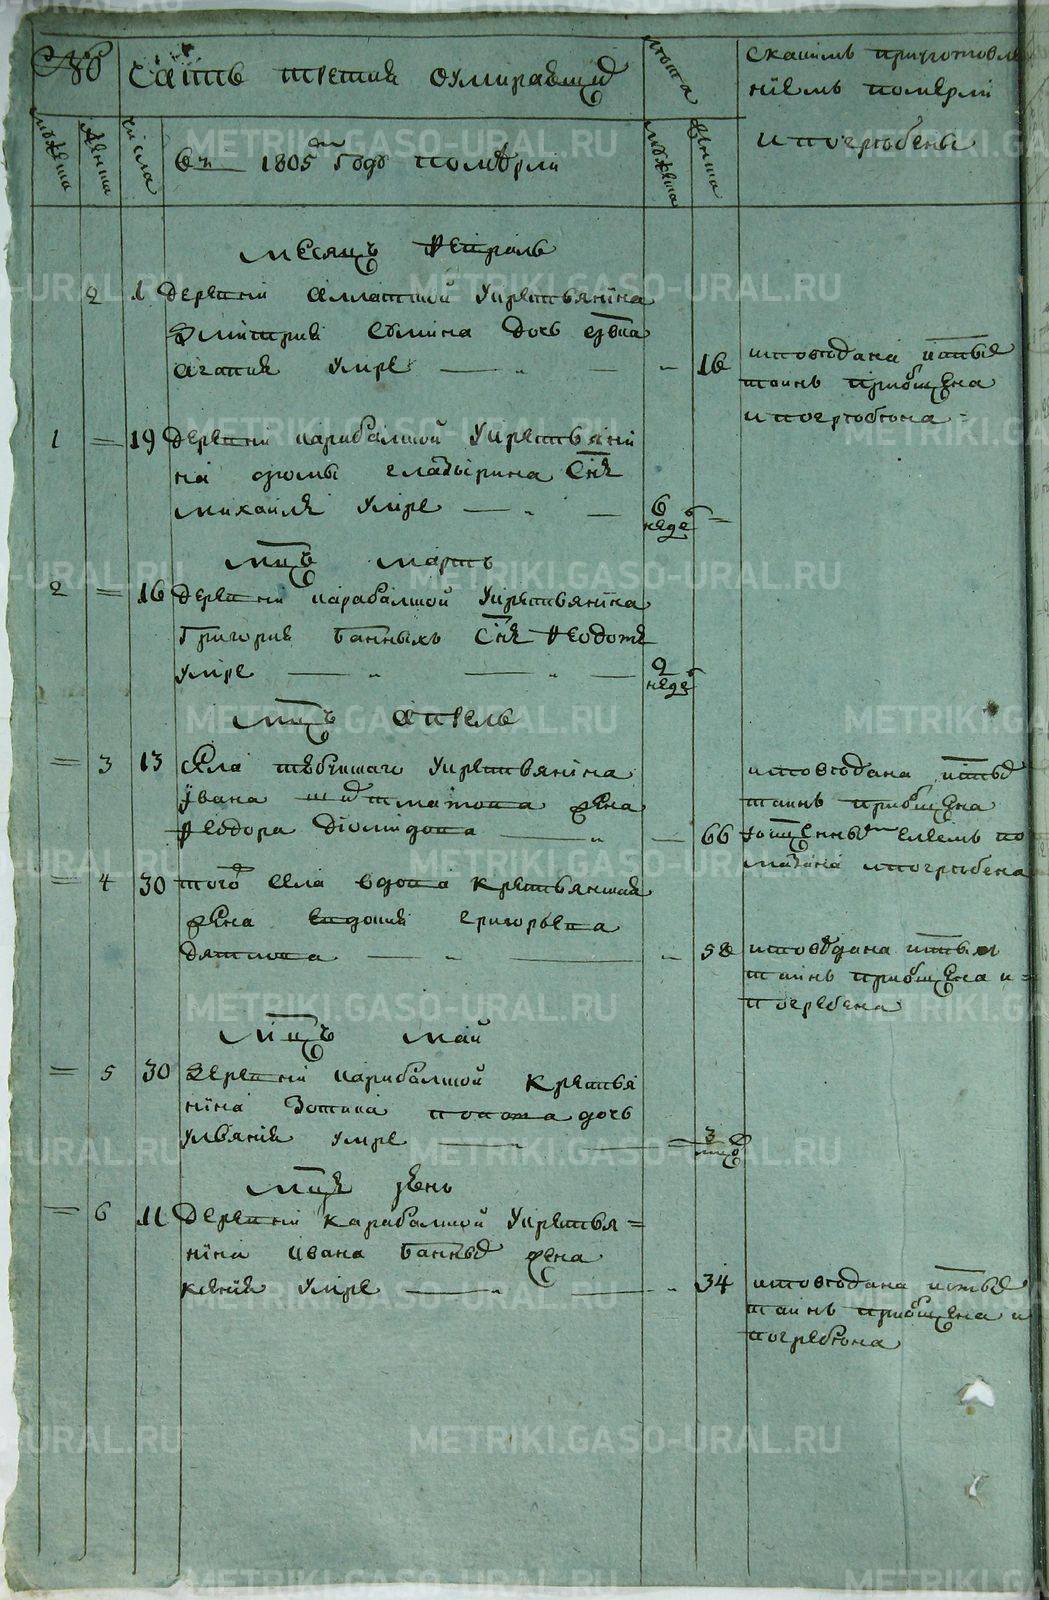 №
часть третия оумирающих
лѣта
скакимъ приуготовле
ниемъ померли
и погребены
мѵжеска
женска
числа
въ 1805м годѣ помѣрли
мѵжеска
женска
месяцъ феираль
2 1 деревни крестьянина
Дмитрия дочь ево
агапия умре 16
исповѣдана ивтые
тайнъ приобщена
и погребена
1 = 19 деревни карабалкой крестьяни
на фомы глазырина снъ
михаилъ умре 6
недѣ =
мцъ мартъ
2 = 16 деревни карабалкой крестьянина
Григория банныхъ снъ феодотъ
умре 2
недѣ
мцъ апрель
= 3 13 села крестьянина
ивана жена
феодора дiомидова 66
исповѣдана
тайнъ приобщена
елеемъ по
мазана и погребена
= 4 30 того села вдова крестьянская
жена евдокия григорьева
дятлова 58
исповѣдана
тайнъ приобщена и=
погребена
мцъ май
= 5 30 деревни карабалкой крестья
нина Зотика попова дочь
улияния умре 3
мцъ iюнь
= 6 11 деревни карабалкой крестья=
нина ивана банных жена
ксения умре 34
исповѣдана
тайнъ приобщена и
погребена
METRIKI.GASO-URAL.RU